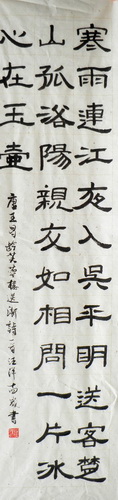 寒雨連江夜入吳平明送客楚
山孤洛陽親友如相問一片冰
心在玉壺
唐王昌齡芙蓉樓送漸詩一首汪洋書